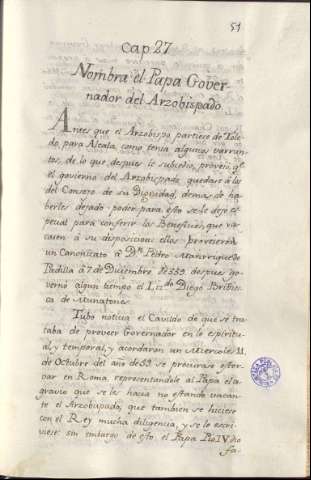 51
Cap 27
Nombra el Papa Gover-
nador del Arzobispado
Antes que el Arzobispo partiere de Tole-
do, para Alcala, como tenia algunos varrun-
tos, de lo que despues le subcedio, proveió, qe.
el govierno del Arzobispado quedase à los
del Consejo de su Dignidad, demas de ha-
berles dejado poder para esto se le dejó es-
pecial para conferir los Beneficios, que va-
casen à su disposicion: ellos proveieron
un Canonicato à Dn. Pedro Manrrique de
Padilla à 7 de Diciembre de 559 despues go-
vernó algun tiempo el Lizdo. Diego Bribies-
ca de Muñatones.
Tubo noticia el Cavildo de que se tra-
taba de proveer Governador en lo espiritu-
al, y temporal, y acordaron un Miercoles 11
de Octubre del año de 59 se procurase estor-
var en Roma, representandole al Papa el a-
gravio que se les hacia no estando vacan-
te el Arzobispado, que tambien se hiciese
con el Rey mucha diligencia, y se lo escri-
viese: sin embargo de esto, el Papa Pio IV dio
fa-